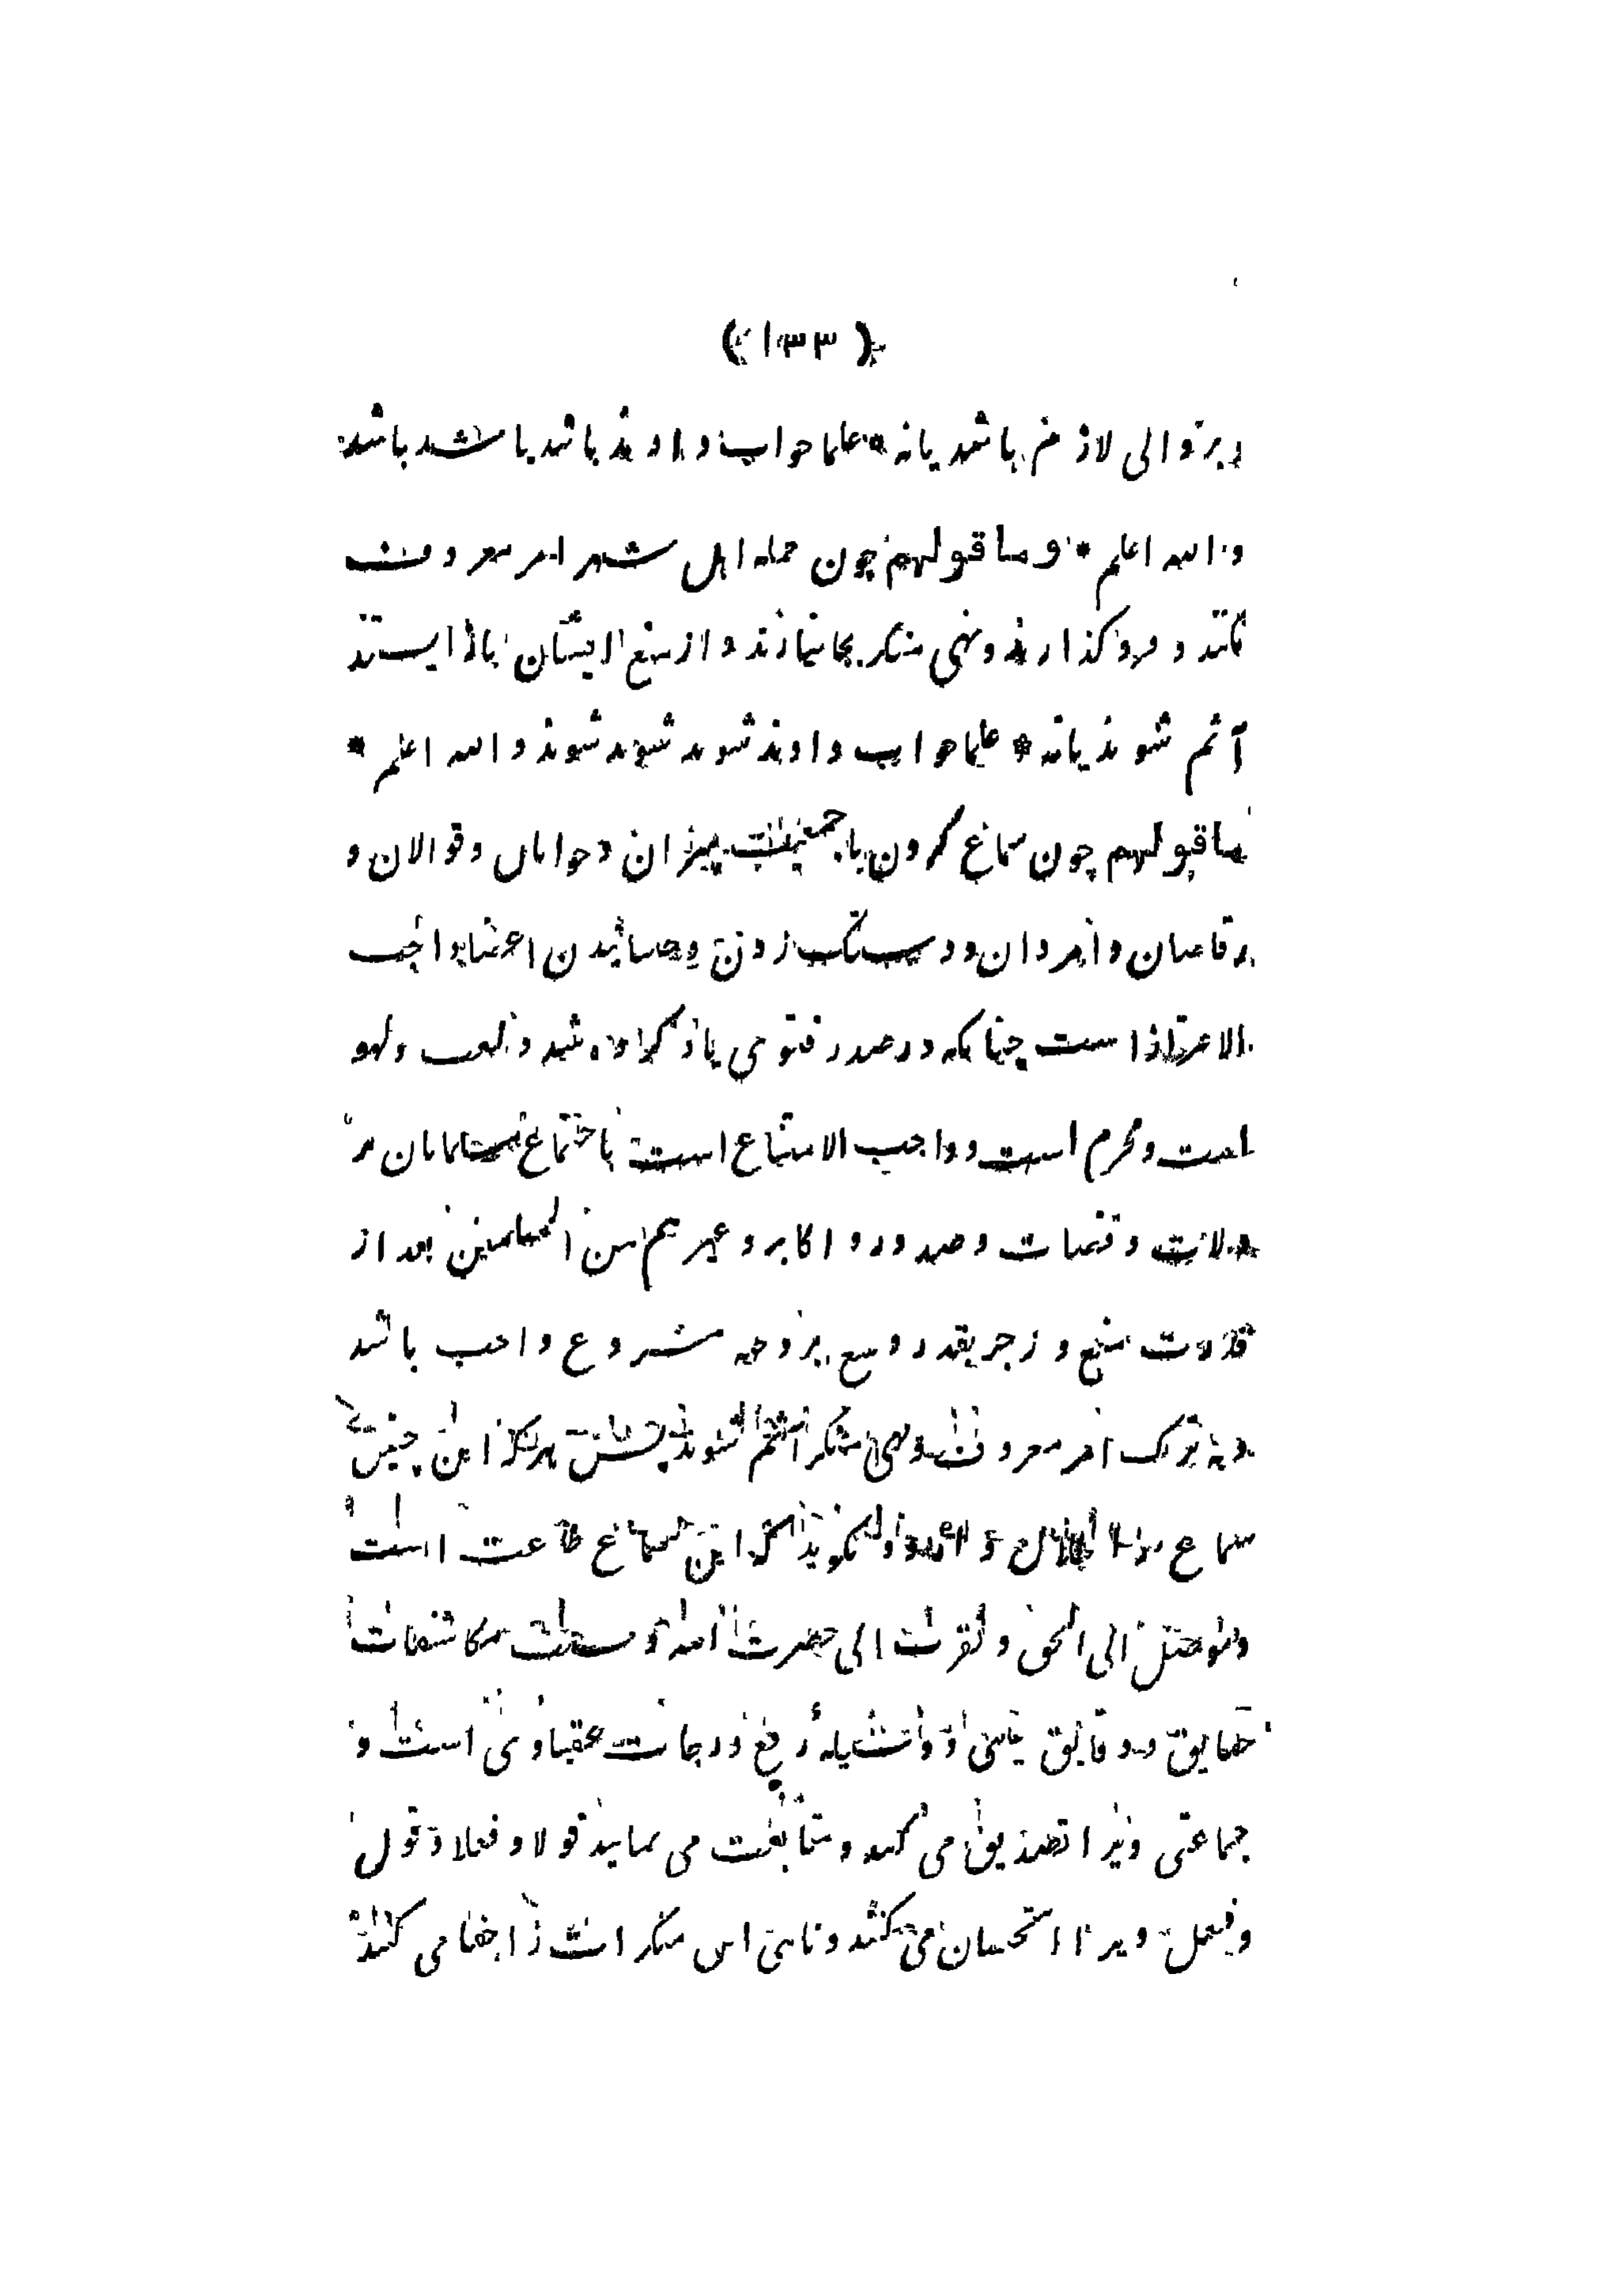 ( ۱۳۳ )
بر والی لازم باشد یا نه * علما جواب دادند باشد باشد باشد
والله اعلم * و ما قولهم چون جمله اهل شهر امر معروف
نکنند و فرو گذارند و نهی منکر بجا نیارند و از منع ایشان باز ایستند
آثم شوند یا نه * علما جواب دادند شوند شوند شوند والله اعلم *
ما قولهم چون سماع کردن با جمعیت پیران و جوانان و قوالان و
رقاصان و امردان و دستک زدن و جنبانیدن اعضا واجب
الاحتراز است چنانکه در صدر فتوی یاد کرده شد و لعب و لهو
است و محرم است و واجب الامتناع است باجتماع مسلمانان بر
ولات و قضات و صدور و اکابر و غیرهم من المسلمین بعد از
قدرت منع و زجر بقدر وسع بر وجه مشروع واجب باشد
و به ترک امر معروف و نهی منکر آثم شوند پس هرکه این چنین
سماع را و گوید که این سماع طاعت است
و موصل الی الحق و تقرب الی حضرت الله و مکاشفات
حقایق و دقایق یقینی و وسیله رفع درجات عقباوی است و
جماعتی ویرا تصدیق می کنند و متابعت می نمایند قولا و فعلا و قول
و فعل ویرا استحسان می کنند و ناهی این منکر است را جفا می کنند